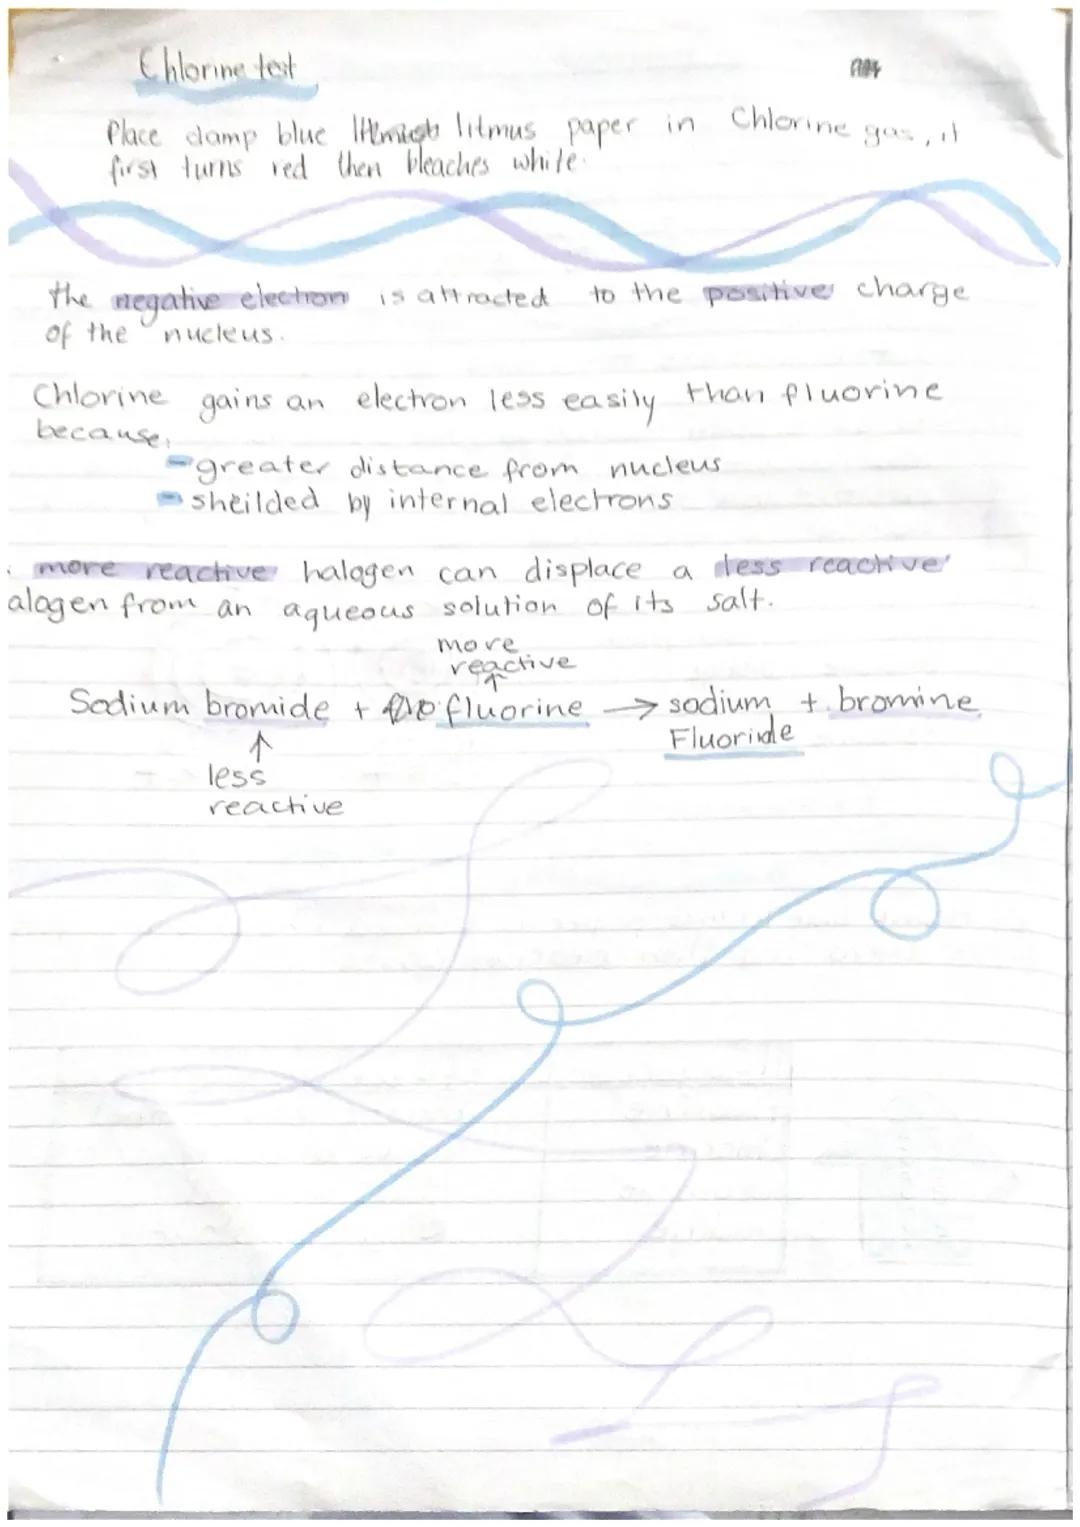 Chlorine test
Place damp blue litmus paper in Chlorine gas, it
first turns red then bleaches white.
the negative electron is attracted to the positive charge
of the nucleus.
Chlorine gains an electron less easily than fluorine
because,
- greater distance from nucleus
- sheilded by internal electrons
more reactive halogen can displace a less reactive
alogen from an aqueous solution of its salt.
more
reactive
↑
Sodium bromide + fluorine → sodium + bromine
Fluoride
↑
less
reactive